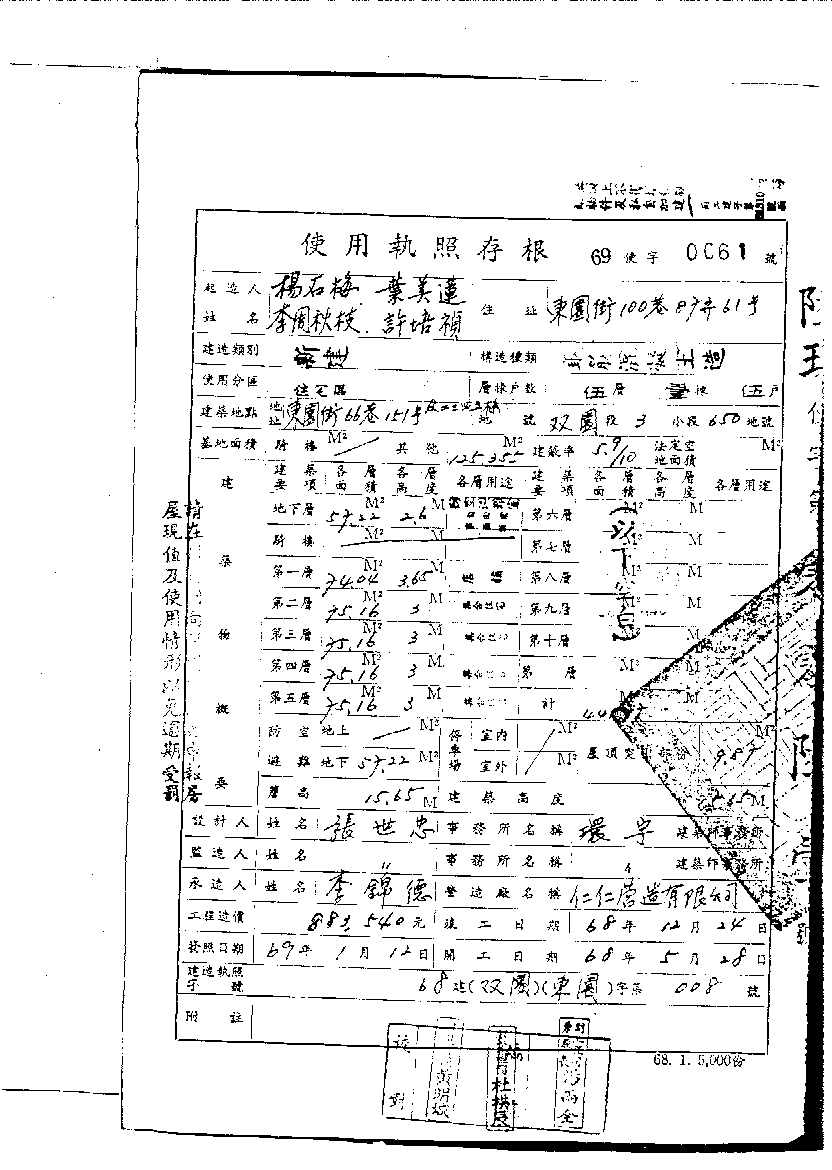 使用執照存根 69 使字 0061 號
起造人姓名 楊石梅 葉美蓮 李周秋枝 許培禎 住址 東園街100巷87弄61号
建造類別 構造種類
使用分區 住宅區 層棟戶數 伍層 壹棟 伍戶
建築地點 地址 東園街66巷151号 地號 双園段 3 小段 650 地號
基地面積 騎樓 M² 其他 125.355 M² 建蔽率 5.9/10 法定空地面積 M²
建築物概要
建築要項 各層面積 各層高度 各層用途 建築要項 各層面積 各層高度 各層用途
地下層 57.22 M² 2.6 M 第六層 (以下空白) M² M
騎樓 M² M 第七層 M² M
第一層 74.04 M² 3.65 M 第八層 M² M
第二層 75.16 M² 3 M 第九層 M² M
第三層 75.16 M² 3 M 第十層 M² M
第四層 75.16 M² 3 M 第 層 M² M
第五層 75.16 M² 3 M 計
防空避難 地上 M² 地下 57.22 M² 停車場 室內 M² 室外 M² 9.87 M²
簷高 15.65 M 建築高度 M
設計人 姓名 張世忠 事務所名稱 環宇 建築師事務所
監造人 姓名 〃 事務所名稱 〃 建築師事務所
承造人 姓名 李錦德 營造廠名稱 仁仁營造有限公司
工程造價 883,540 元 竣工日期 68年12月24日
發照日期 69年1月12日 開工日期 68年5月28日
建造執照字號 68建(双園)(東園)字第 008 號
附註
68. 1. 5,000份
屋現值及使用情形以免逾期受罰
校對